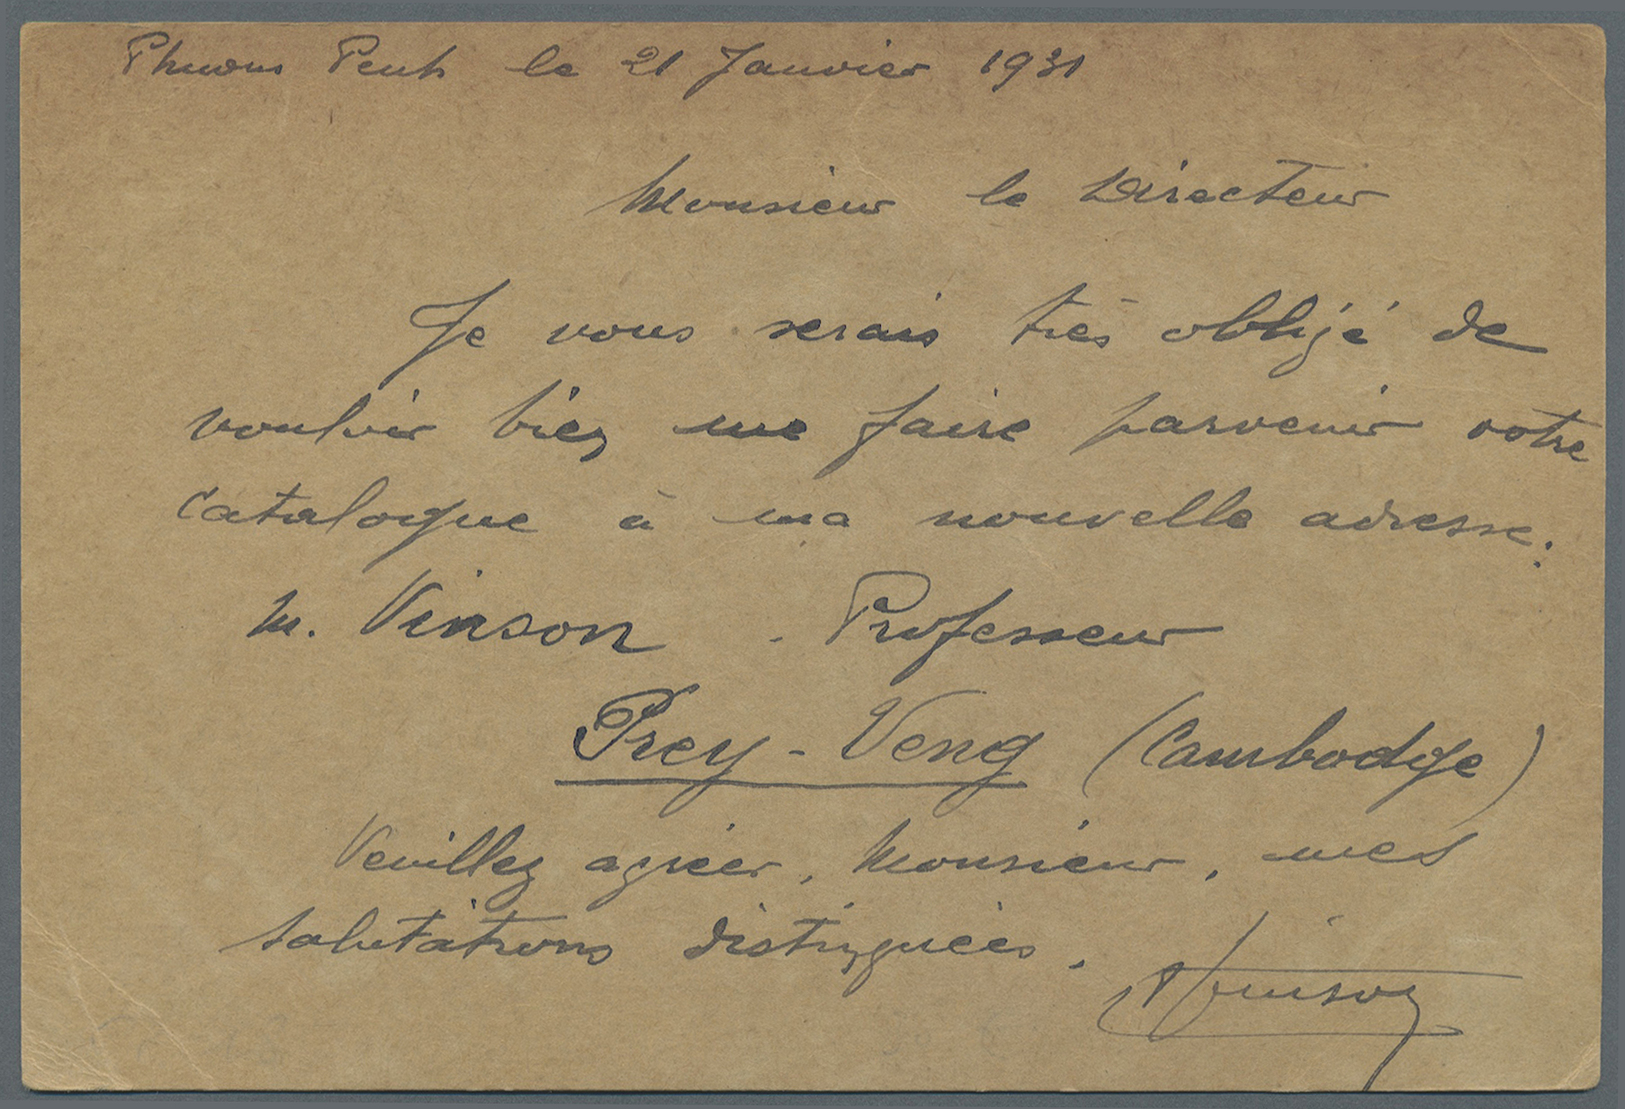 Phnom Penh le 21 Janvier 1931
Monsieur le Directeur
Je vous serais très obligé de
vouloir bien me faire parvenir votre
Catalogue à ma nouvelle adresse :
M. Vinson - Professeur
Prey-Veng (Cambodge)
Veuillez agréer, Monsieur, mes
salutations distinguées.
Vinson